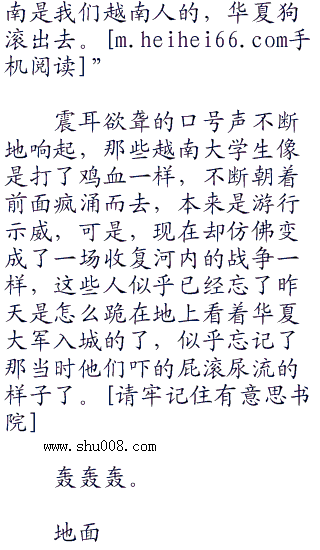 南是我们越南人的，华夏狗
滚出去。[m.heihei66.com手
机阅读]”
震耳欲聋的口号声不断
地响起，那些越南大学生像
是打了鸡血一样，不断朝着
前面疯涌而去，本来是游行
示威，可是，现在却仿佛变
成了一场收复河内的战争一
样，这些人似乎已经忘了昨
天是怎么跪在地上看着华夏
大军入城的了，似乎忘记了
那当时他们吓的屁滚尿流的
样子了。[请牢记住有意思书
院]
www.shu008.com
轰轰轰。
地面